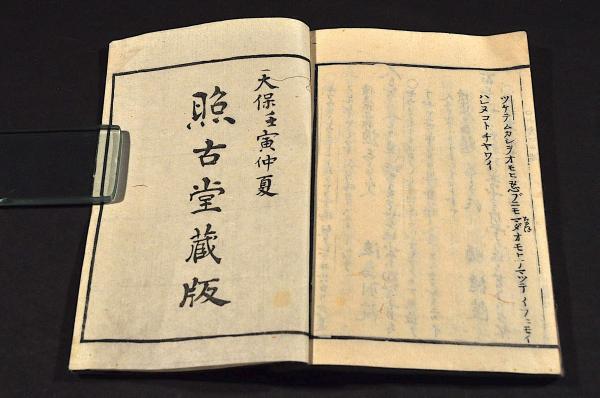 ツケテムカシヲオモヒ忍ブニモマダオモヒノマツテイフニモイ
ハレヌコトヂヤワイ
天保壬寅仲夏
照古堂蔵版